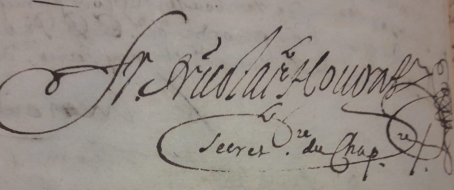 fr. Nicolas
Secret.re du Chap.re